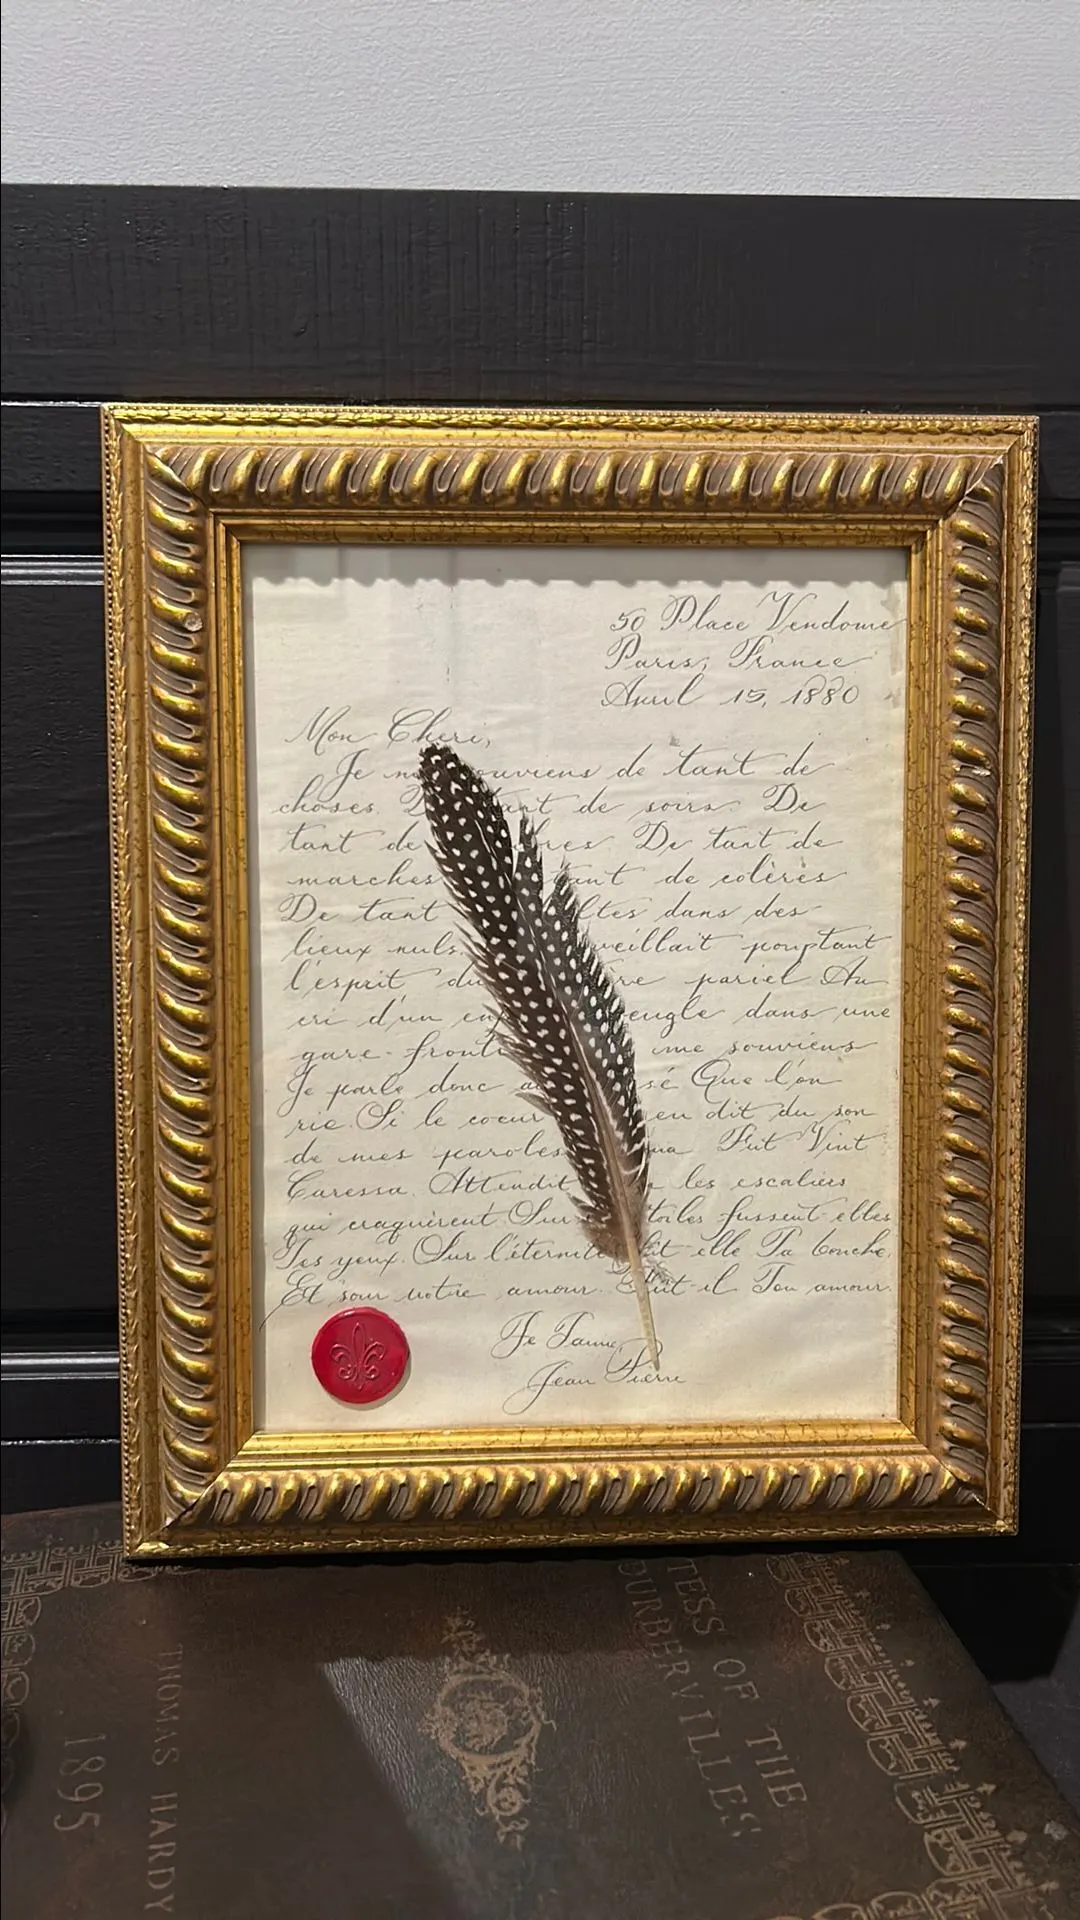 50 Place Vendome
Paris, France
Avril 15, 1880
Mon Cheri,
Je souviens de tant de
choses. de soirs. De
tant de De tant de
marches tant de colères
De tant dans des
lieux nuls. veillait pourtant
l'esprit du pariel Au
cri d'un eugle dans une
gare-fronti me souviens
Je parle donc sé Que l'on
rie. Si le coeur en dit du son
de mes paroles Fut Vint
Caressa. Attendit les escaliers
qui craquirent Sur toiles fussent-elles
Tes yeux. Sur l'éternité fût-elle Ta bouche.
Et sour notre amour. Fût-il Ton amour.
Je T'aime
Jean Pierre
TESS OF THE
DURBERVILLES
THOMAS HARDY
1895